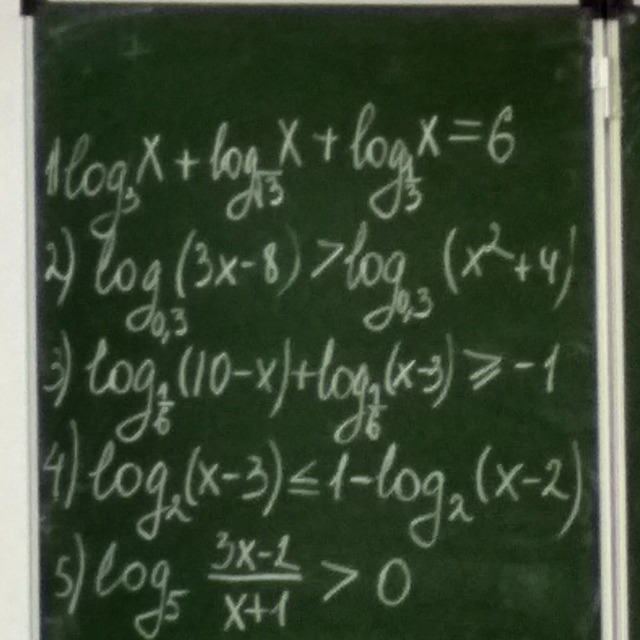 1) log_3 x + log_√3 x + log_{1/3} x = 6
2) log_{0,3} (3x-8) > log_{0,3} (x²+4)
3) log_{1/6} (10-x) + log_{1/6} (x-3) ≥ -1
4) log_2 (x-3) ≤ 1 - log_2 (x-2)
5) log_5 (3x-2)/(x+1) > 0